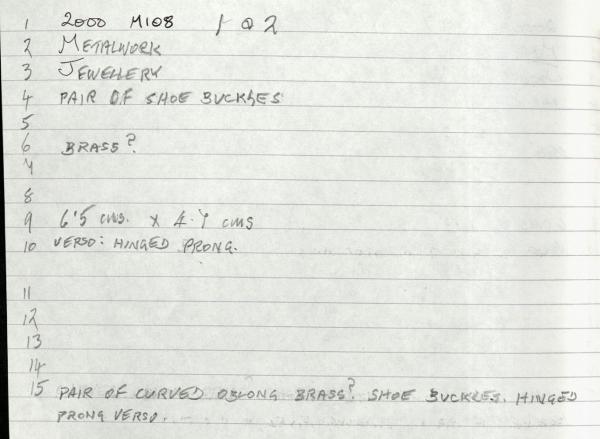 1 2000 M108 1 @ 2
2 METALWORK
3 JEWELLERY
4 PAIR OF SHOE BUCKLES
5
6 BRASS?
7
8
9 6.5 cms. x 4.7 cms
10 VERSO: HINGED PRONG.
11
12
13
14
15 PAIR OF CURVED OBLONG BRASS? SHOE BUCKLES. HINGED
PRONG VERSO.